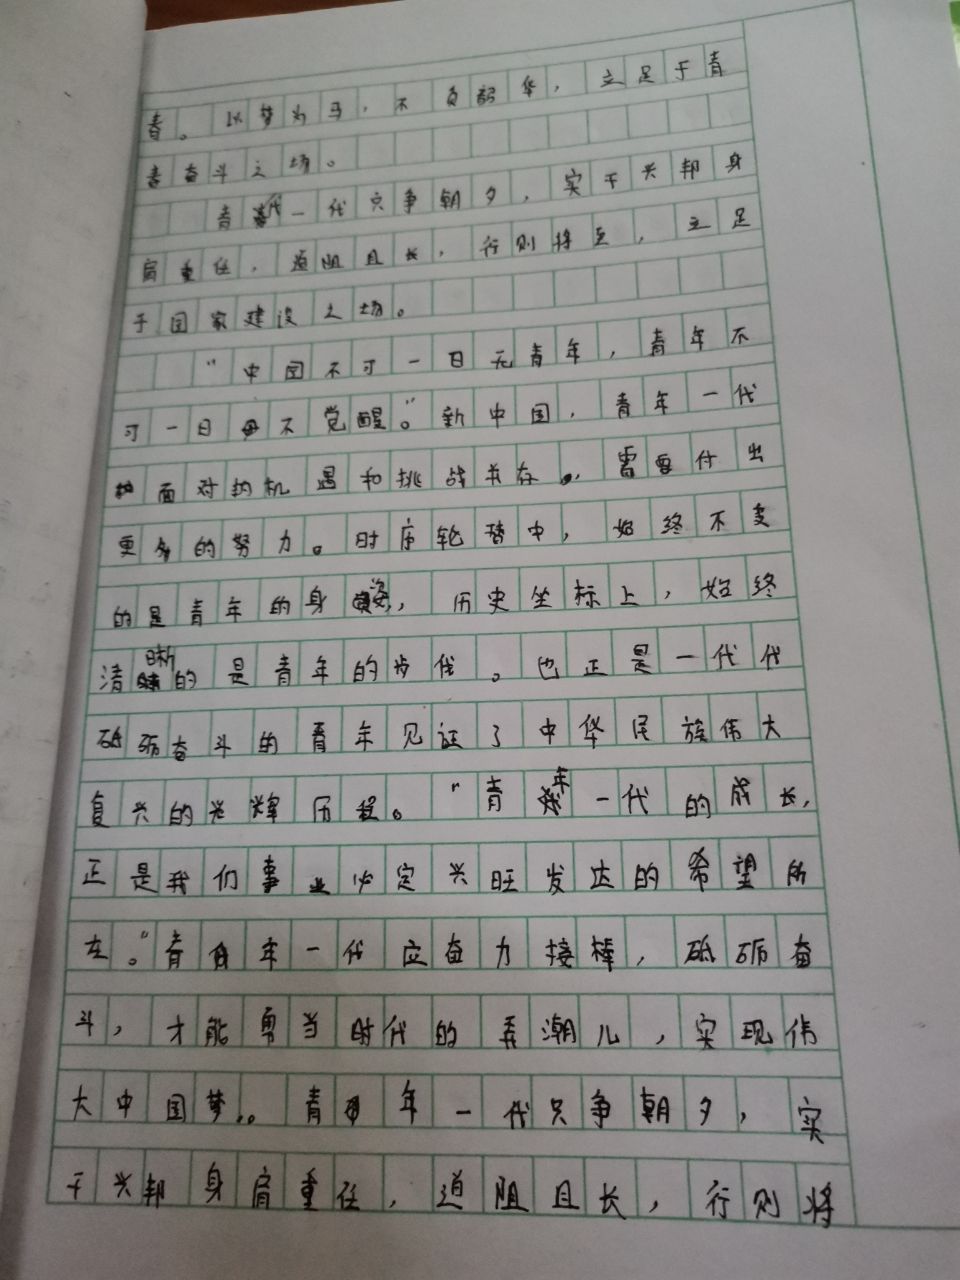 春。以梦为马，不负韶华，立足于青
春奋斗之场。
青年一代只争朝夕，实干兴邦身
肩重任，道阻且长，行则将至，立足
于国家建设之场。
"中国不可一日无青年，青年不
可一日不觉醒。"新中国，青年一代
面对的机遇和挑战并存，需要付出
更多的努力。时序轮替中，始终不变
的是青年的身姿，历史坐标上，始终
清晰的是青年的步伐。也正是一代代
砥砺奋斗的青年见证了中华民族伟大
复兴的光辉历程。"青年一代的成长，
正是我们事业必定兴旺发达的希望所
在。"青年一代应奋力接棒，砥砺奋
斗，才能勇当时代的弄潮儿，实现伟
大中国梦。青年一代只争朝夕，实
干兴邦身肩重任，道阻且长，行则将